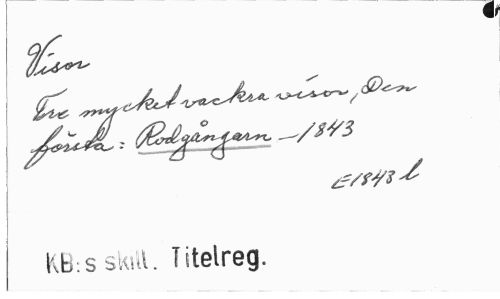 Visor
Tre mycket vackra visor, Den
första: Rodgångarn - 1843
E1843 l
KB:s skill. Titelreg.